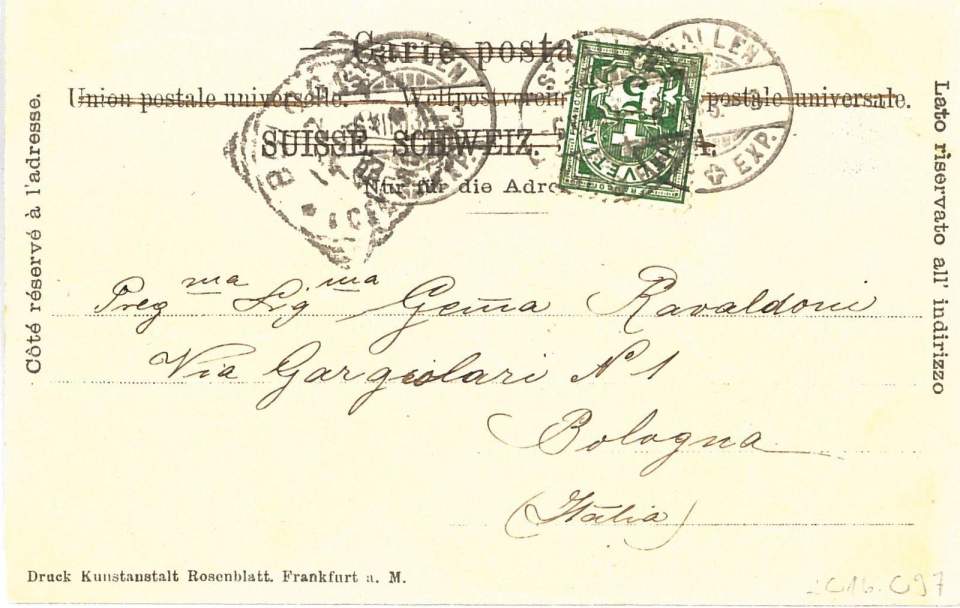 Carte posta
Union postale universelle. Weltpostverein postale universale.
SUISSE. SCHWEIZ. A.
Nur für die Adre
Côté réservé à l'adresse.
Lato riservato all' indirizzo
ALLEN
EXP.
5
Preg ma Sig ma Gem̄a Ravaldoni
Via Gargiolari N 1
Bologna
(Italia)
Druck Kunstanstalt Rosenblatt. Frankfurt a. M.